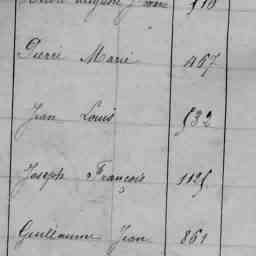 Pierre Marie 1467
Jean Louis 532
Joseph François 1125
Guillaume Jean 861